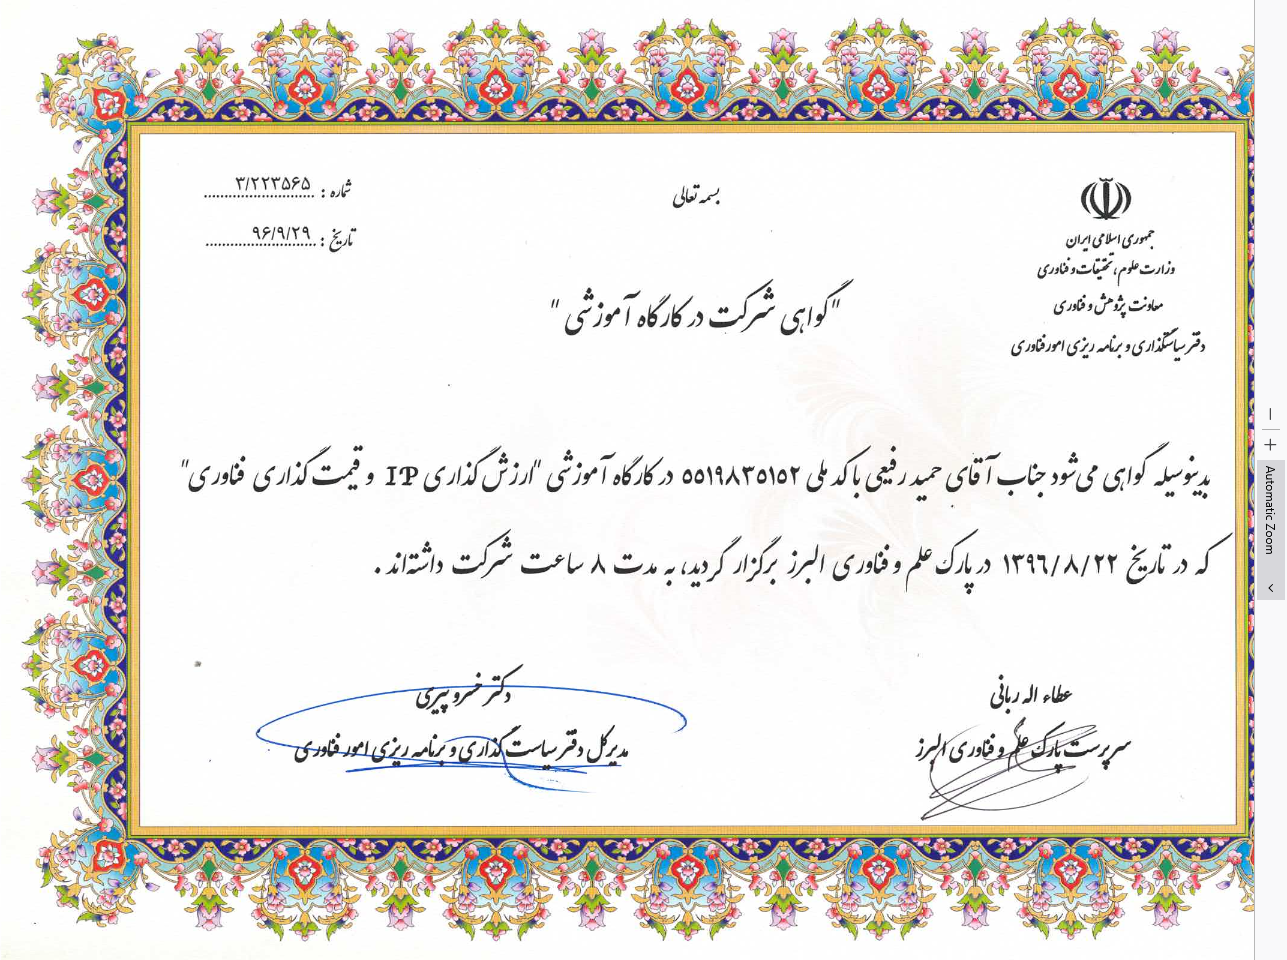 بسمه تعالی
جمهوری اسلامی ایران
وزارت علوم، تحقیقات و فناوری
معاونت پژوهش و فناوری
دفتر سیاستگذاری و برنامه ریزی امور فناوری
شماره : ۳/۲۲۳۵۶۵
تاریخ : ۹۶/۹/۲۹
"گواهی شرکت در کارگاه آموزشی"
بدینوسیله گواهی می‌شود جناب آقای حمید رفیعی با کد ملی ۵۵۱۹۸۳۵۱۵۲ در کارگاه آموزشی "ارزش گذاری IP و قیمت گذاری فناوری"
که در تاریخ ۱۳۹۶/۸/۲۲ در پارک علم و فناوری البرز برگزار گردید، به مدت ۸ ساعت شرکت داشته‌اند .
عطاء اله ربانی
سرپرست پارک علم و فناوری البرز
دکتر خسرو پیری
مدیرکل دفتر سیاست گذاری و برنامه ریزی امور فناوری
Automatic Zoom